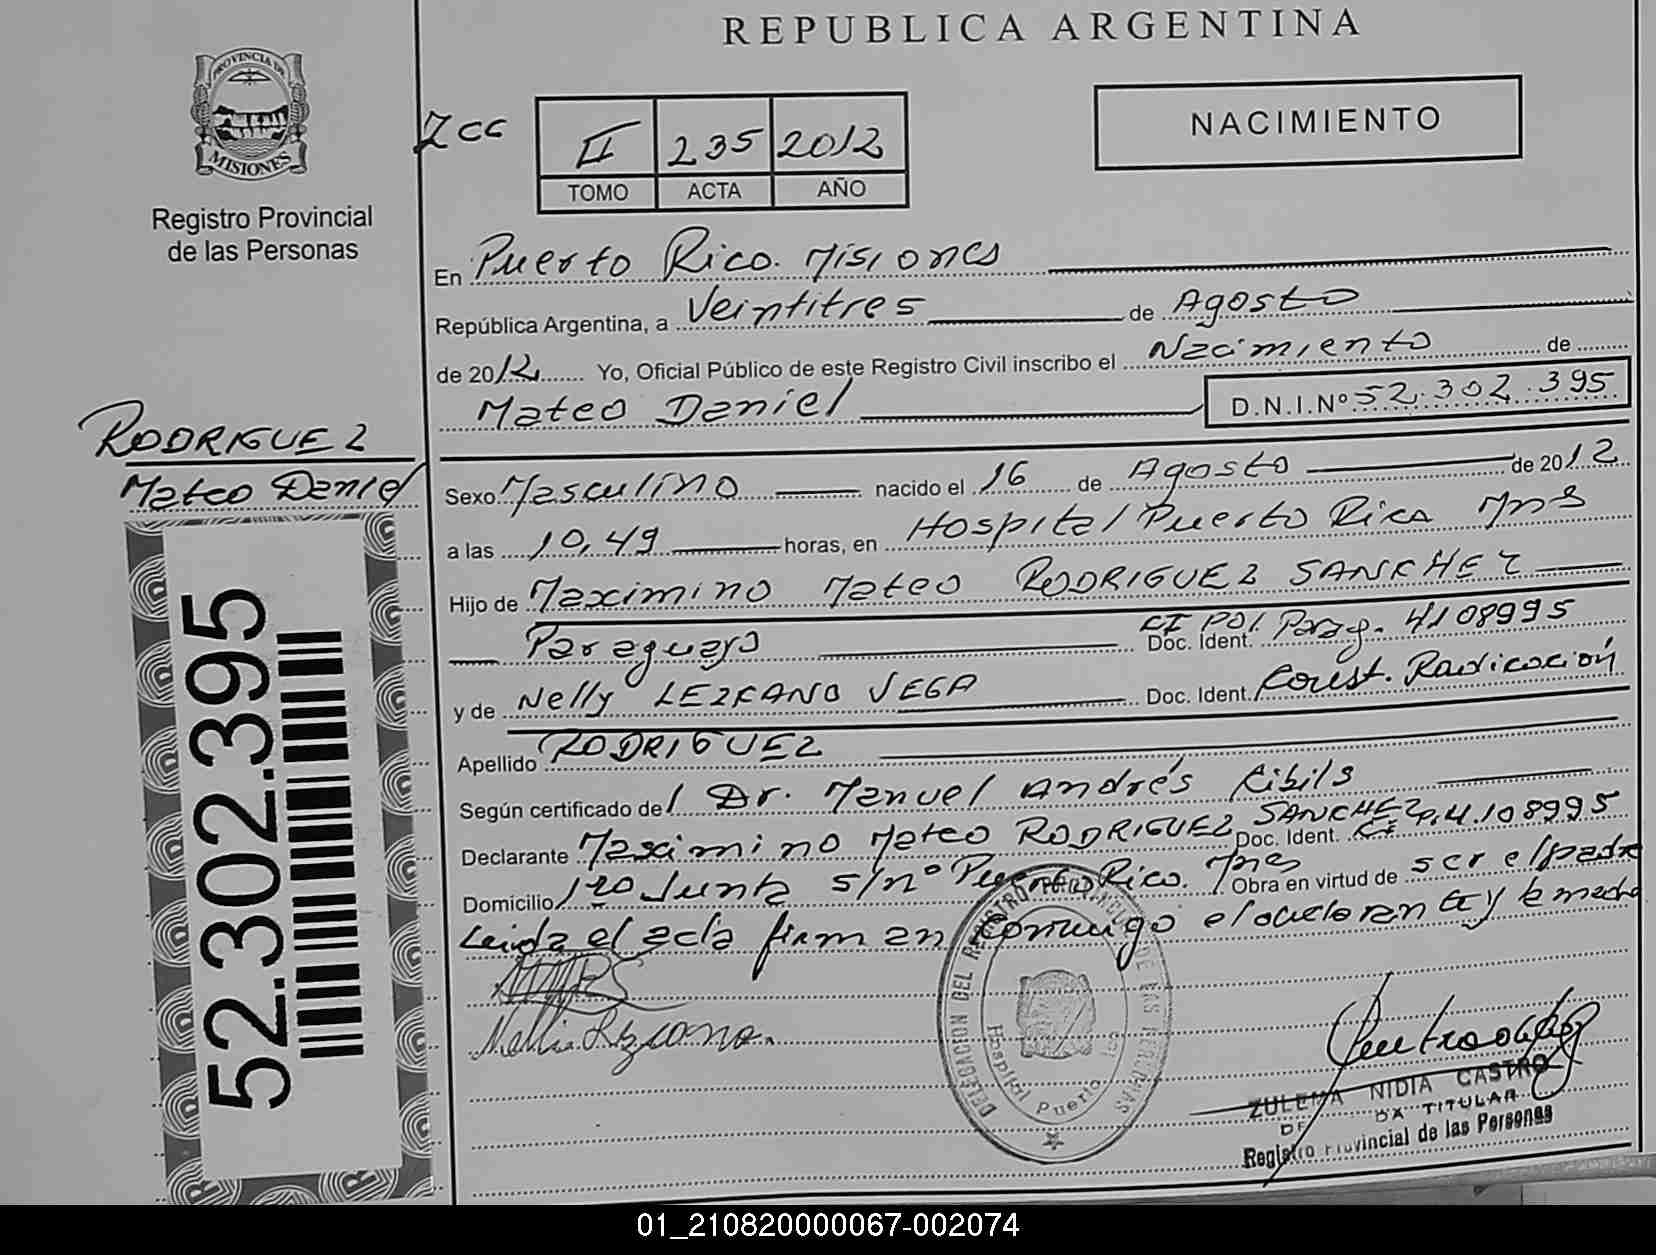 REPUBLICA ARGENTINA
PROVINCIA DE
MISIONES
Registro Provincial
de las Personas
Zcc
II 235 2012
TOMO ACTA AÑO
NACIMIENTO
En Puerto Rico. Misiones
República Argentina, a Veintitres de Agosto
de 2012 Yo, Oficial Público de este Registro Civil inscribo el Nacimiento de
Mateo Daniel D.N.I.Nº 52.302.395
RODRIGUEZ
Mateo Daniel
52.302.395
Sexo Masculino nacido el 16 de Agosto de 2012
a las 10,49 horas, en Hospital Puerto Rico Mns
Hijo de Maximino Mateo RODRIGUEZ SANCHEZ
Paraguayo Doc. Ident. CI POl. Parag. 4108995
y de Nelly LEZCANO VEGA Doc. Ident. Const. Radicación
Apellido RODRIGUEZ
Según certificado del Dr. Manuel Andrés Ribils
Declarante Maximino Mateo RODRIGUEZ SANCHEZ Doc. Ident. 4.108995
Domicilio 1ro Junta s/nº Puerto Rico. Mns Obra en virtud de ser el padre
Leida el acta firman conmigo el declarante y la madre
DELEGACION DEL REGISTRO PROVINCIAL DE LAS PERSONAS
Hospital Puerto
ZULEMA NIDIA CASTRO
TITULAR
Registro Provincial de las Personas
01_210820000067-002074